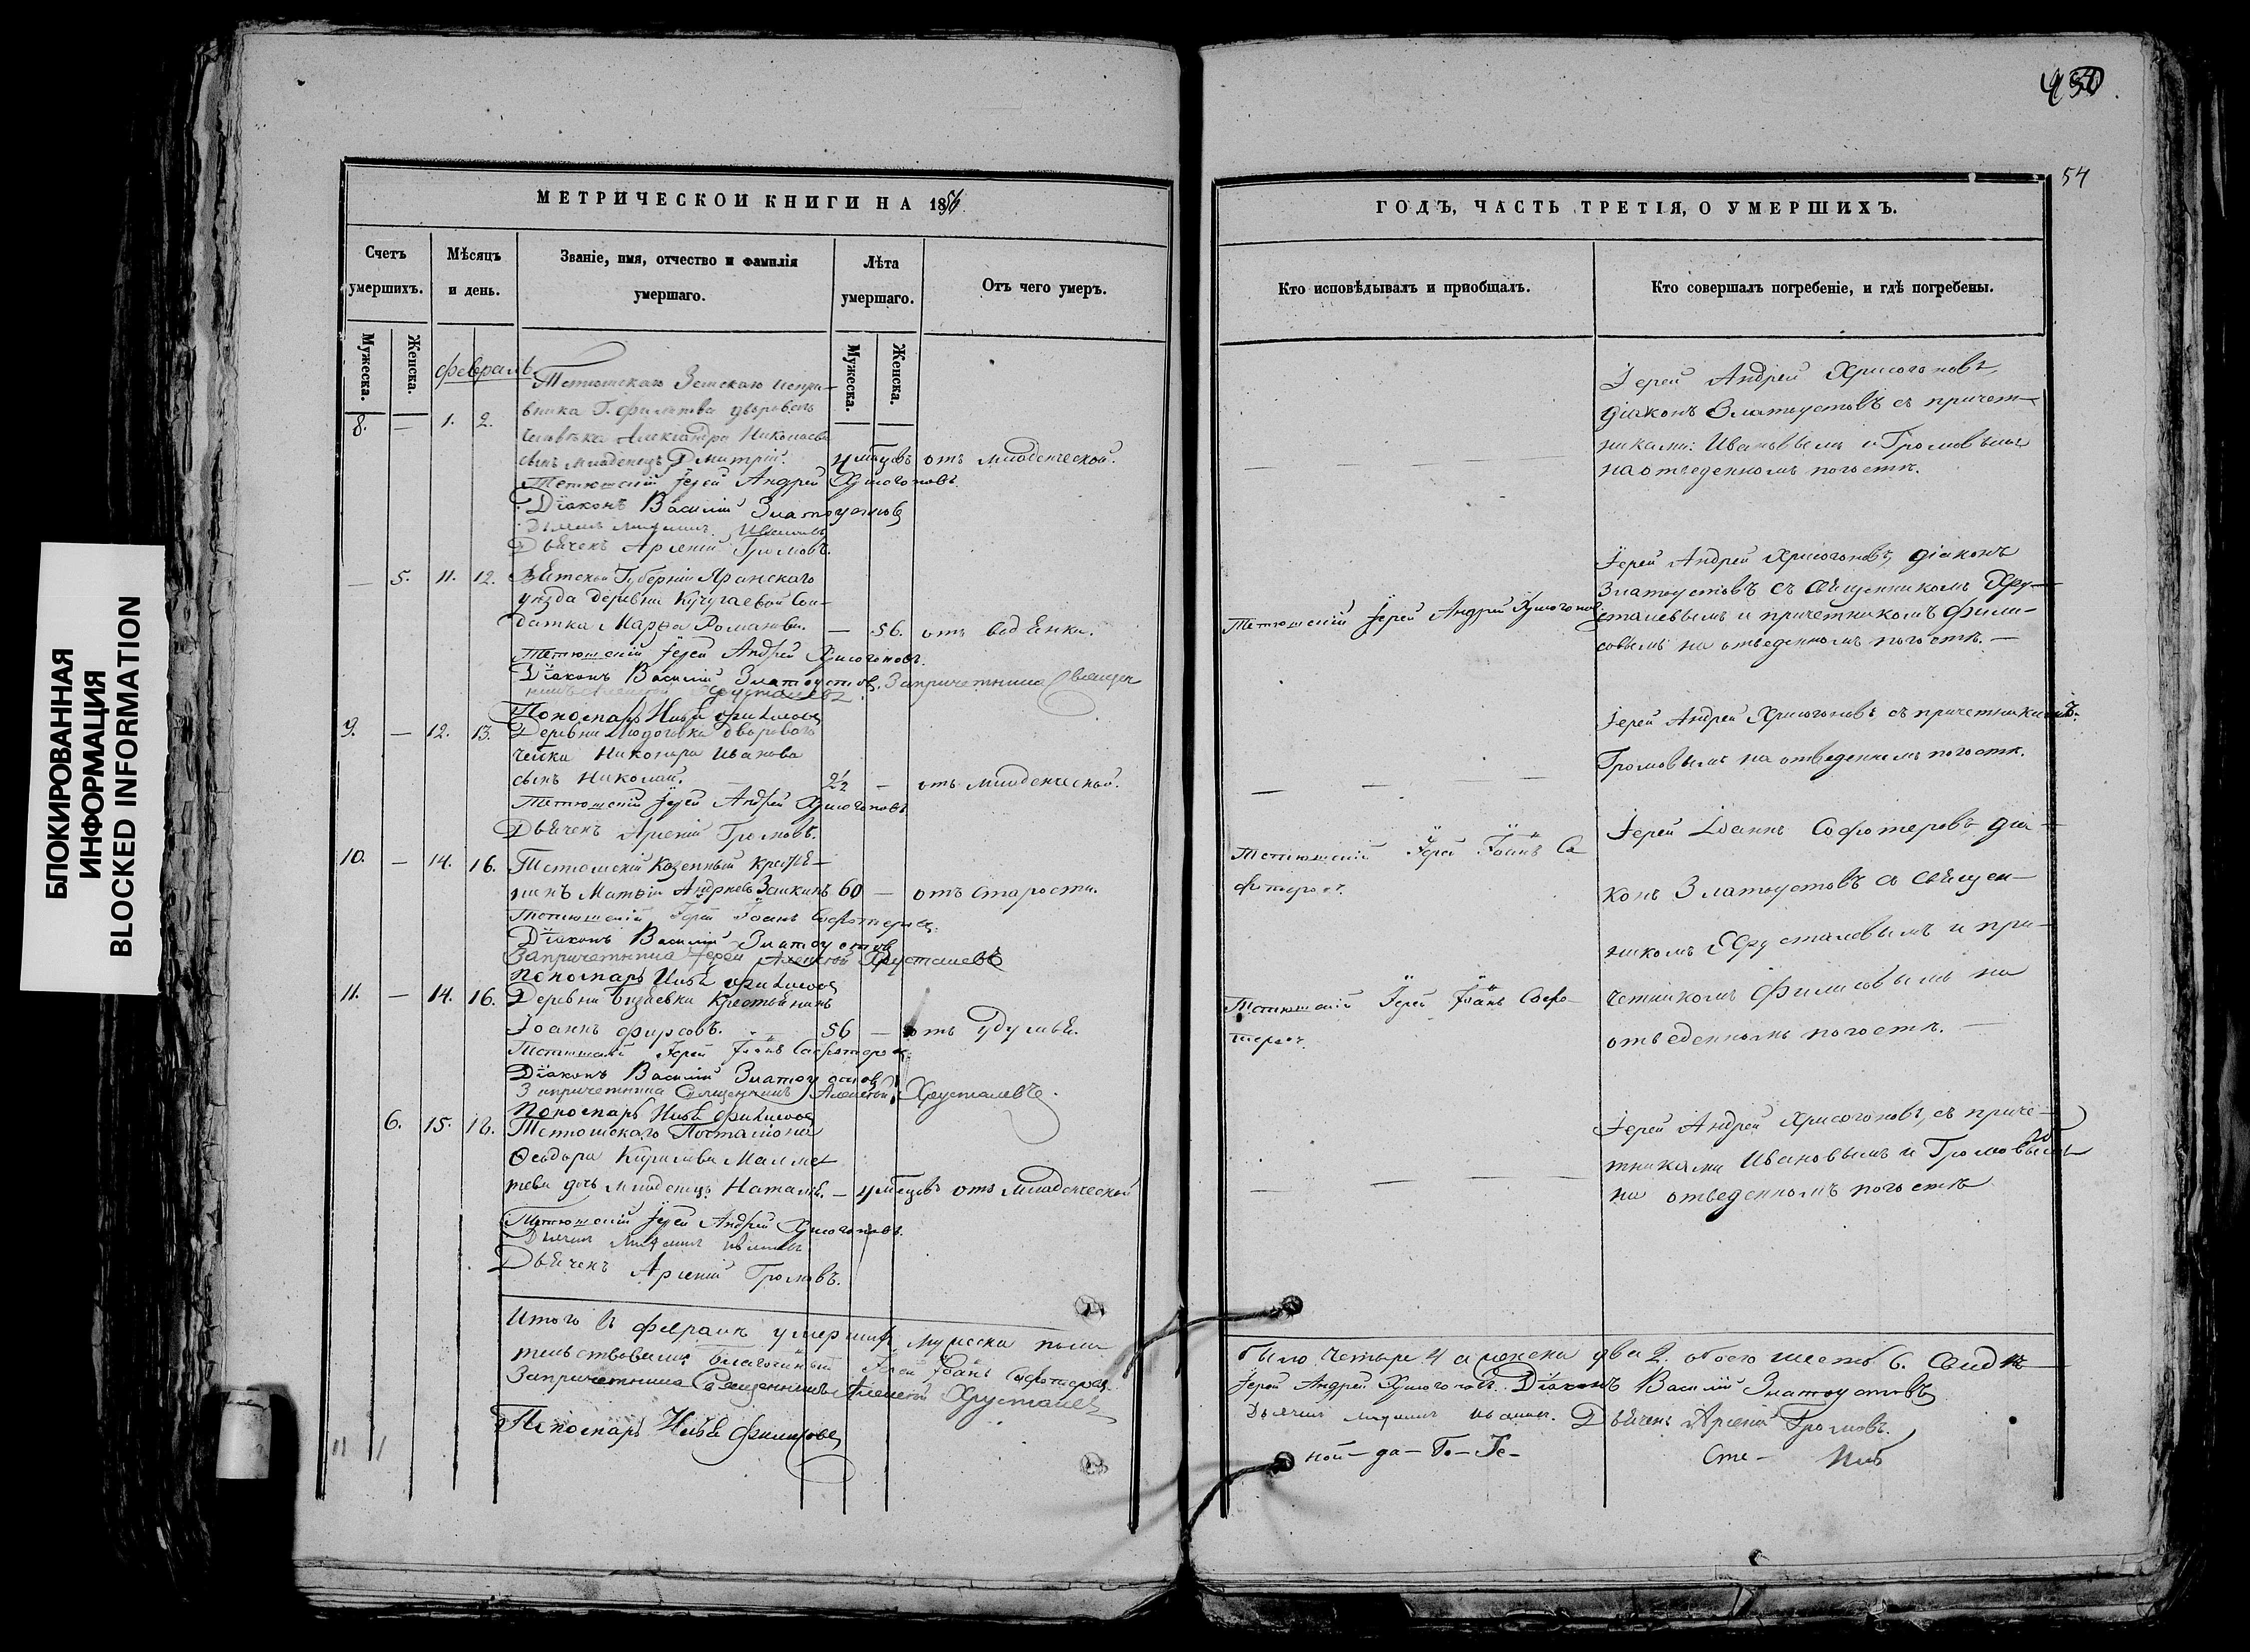 БЛОКИРОВАННАЯ
ИНФОРМАЦИЯ
BLOCKED INFORMATION
МЕТРИЧЕСКОЙ КНИГИ НА 1856
Счетъ умершихъ.
Мужеска.
Женска.
Мѣсяцъ и день.
Званіе, имя, отчество и фамилія умершаго.
Лѣта умершаго.
Мужеска.
Женска.
Отъ чего умеръ.
февраль
Тетюшскаго Земскаго Испра-
вника Г. дворов.
8. — 1. 2. человѣка Александра Николаева
сынъ младенецъ Дмитрій. 4 мѣсцовъ отъ младенческой.
Тетюшскій Іерей Андрей Хрисогоновъ.
Діаконъ Василій Златоустовъ
Ивановъ
Дьячекъ Арсеній Громовъ.
— 5. 11. 12. Вятской Губерніи Яранскаго
уѣзда деревни Кучугаевой Сол-
датка Марѳа Романова. — 56. отъ водянки.
Тетюшскій Іерей Андрей Хрисогоновъ.
Діаконъ Василій Златоустовъ. Запричетника Священ
никъ Алексѣй Хрусталевъ.
Пономарь Филисовъ
9. — 12. 13. Деревни Людоговки дворового
чѣлка Никонора Иванова
сынъ Николай. 2½ — отъ младенческой.
Тетюшскій Іерей Андрей Хрисогоновъ
Дьячекъ Арсеній Громовъ.
10. — 14. 16. Тетюшскій казенный крестья-
нинъ Матвѣй Андреевъ 60 — отъ старости.
Тетюшскій Іерей Іоаннъ Софотеровъ.
Діаконъ Василій Златоустовъ
Запричетника Іерей Алексѣй Хрусталевъ
Пономарь Филисовъ
11. — 14. 16. Деревни Бизяевки Крестьянинъ
Іоаннъ Фирсовъ. 56 — отъ удушья.
Тетюшскій Іерей Іоаннъ Софотеровъ.
Діаконъ Василій Златоустовъ
Запричетника Священникъ Алексѣй Хрусталевъ.
Пономарь Филисовъ
6. 15. 18. Тетюшскаго Посталіона
Ѳеодора Кирилова
дочь младенецъ Наталія. — 4 мѣсцовъ отъ младенческой
Тетюшскій Іерей Андрей Хрисогоновъ.
Дьячекъ Арсеній Громовъ.
Итого въ февралѣ умершихъ мужеска пола
тельствовали: Благочинный Іерей Іоаннъ Софотеровъ.
Запричетника Священникъ Алексѣй Хрусталевъ
Пономарь Филисовъ
430
54
ГОДЪ, ЧАСТЬ ТРЕТІЯ, О УМЕРШИХЪ.
Кто исповѣдывалъ и пріобщалъ.
Кто совершалъ погребеніе, и гдѣ погребены.
Іерей Андрей Хрисогоновъ,
діаконъ Златоустовъ съ причет-
никами: Ивановымъ и Громовымъ
— — — на отведенномъ погостѣ.
Іерей Андрей Хрисогоновъ, діаконъ
Златоустовъ съ священникомъ Хру-
Тетюшскій Іерей Андрей Хрисогоновъ
сталевымъ и причетникомъ Фили-
совымъ на отведенномъ погостѣ. —
Іерей Андрей Хрисогоновъ съ причетникомъ
— — — Громовымъ на отведенномъ погостѣ.
Тетюшскій Іерей Іоаннъ Со
фотеровъ.
Іерей Іоаннъ Софотеровъ діа-
конъ Златоустовъ съ священ-
никомъ Хрусталевымъ и при-
Тетюшскій Іерей Іоаннъ Софо-
теровъ.
четникомъ Филисовымъ на
отведенномъ погостѣ. —
Іерей Андрей Хрисогоновъ, съ приче-
тниками Ивановымъ и Громовымъ
— — — на отведенномъ погостѣ
было четыре 4 а женска два 2. обоего шесть 6. Свидѣ-
Іерей Андрей Хрисогоновъ. Діаконъ Василій Златоустовъ
Дьячекъ Арсеній Громовъ.
ной — да — Го — Те —
Сте —